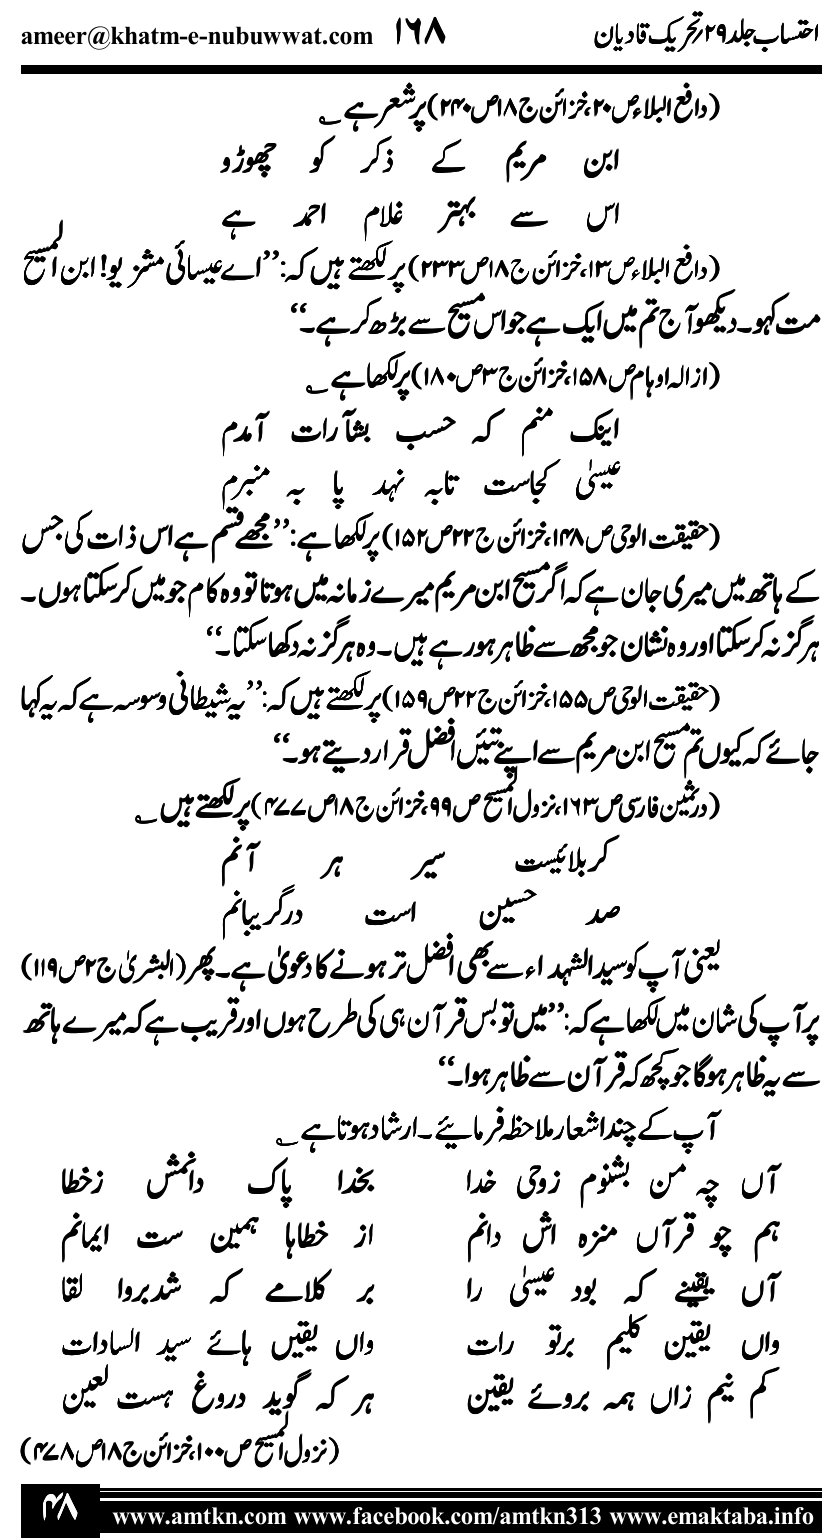 ameer@khatm-e-nubuwwat.com ۱۶۸ احتساب جلد۲۹؍تحریک قادیان
(دافع البلاء ص۲۰، خزائن ج۱۸ص۲۴۰) پر شعر ہے ؎
ابن مریم کے ذکر کو چھوڑو
اس سے بہتر غلام احمد ہے
(دافع البلاء ص۱۳، خزائن ج۱۸ص۲۳۳) پر لکھتے ہیں کہ: ’’اے عیسائی مشنریو! ابن المسیح
مت کہو۔ دیکھو آج تم میں ایک ہے جو اس مسیح سے بڑھ کر ہے۔‘‘
(ازالہ اوہام ص۱۵۸، خزائن ج۳ص۱۸۰) پر لکھا ہے ؎
اینک منم کہ حسب بشآرات آمدم
عیسیٰ کجاست تابہ نہد پا بہ منبرم
(حقیقت الوحی ص۱۴۸، خزائن ج۲۲ص۱۵۲) پر لکھا ہے: ’’مجھے قسم ہے اس ذات کی جس
کے ہاتھ میں میری جان ہے کہ اگر مسیح ابن مریم میرے زمانہ میں ہوتا تو وہ کام جو میں کرسکتا ہوں۔
ہرگز نہ کرسکتا اور وہ نشان جو مجھ سے ظاہر ہورہے ہیں۔ وہ ہرگز نہ دکھا سکتا۔‘‘
(حقیقت الوحی ص۱۵۵، خزائن ج۲۲ص۱۵۹) پر لکھتے ہیں کہ: ’’یہ شیطانی وسوسہ ہے کہ یہ کہا
جائے کہ کیوں تم مسیح ابن مریم سے اپنے تئیں افضل قرار دیتے ہو۔‘‘
(درثمین فارسی ص۱۶۳، نزول المسیح ص۹۹، خزائن ج۱۸ص۴۷۷) پر لکھتے ہیں ؎
کربلائیست سیر ہر آنم
صد حسین است درگریبانم
یعنی آپ کو سید الشہداء سے بھی افضل تر ہونے کا دعویٰ ہے۔ پھر (البشریٰ ج۲ص۱۱۹)
پر آپ کی شان میں لکھا ہے کہ: ’’میں تو بس قرآن ہی کی طرح ہوں اور قریب ہے کہ میرے ہاتھ
سے یہ ظاہر ہوگا جو کچھ کہ قرآن سے ظاہر ہوا۔‘‘
آپ کے چند اشعار ملاحظہ فرمائیے۔ ارشاد ہوتا ہے ؎
آں چہ من بشنوم زوحی خدا بخدا پاک دانمش زخطا
ہم چو قرآں منزہ اش دانم از خطاہا ہمین ست ایمانم
آں یقینے کہ بود عیسیٰ را بر کلامے کہ شدبروا لقا
واں یقین کلیم برتو رات واں یقیں ہائے سید السادات
کم نیم زاں ہمہ بروئے یقین ہر کہ گوید دروغ ہست لعین
(نزول المسیح ص۱۰۰، خزائن ج۱۸ص۴۷۸)
۴۸ www.amtkn.com www.facebook.com/amtkn313 www.emaktaba.info